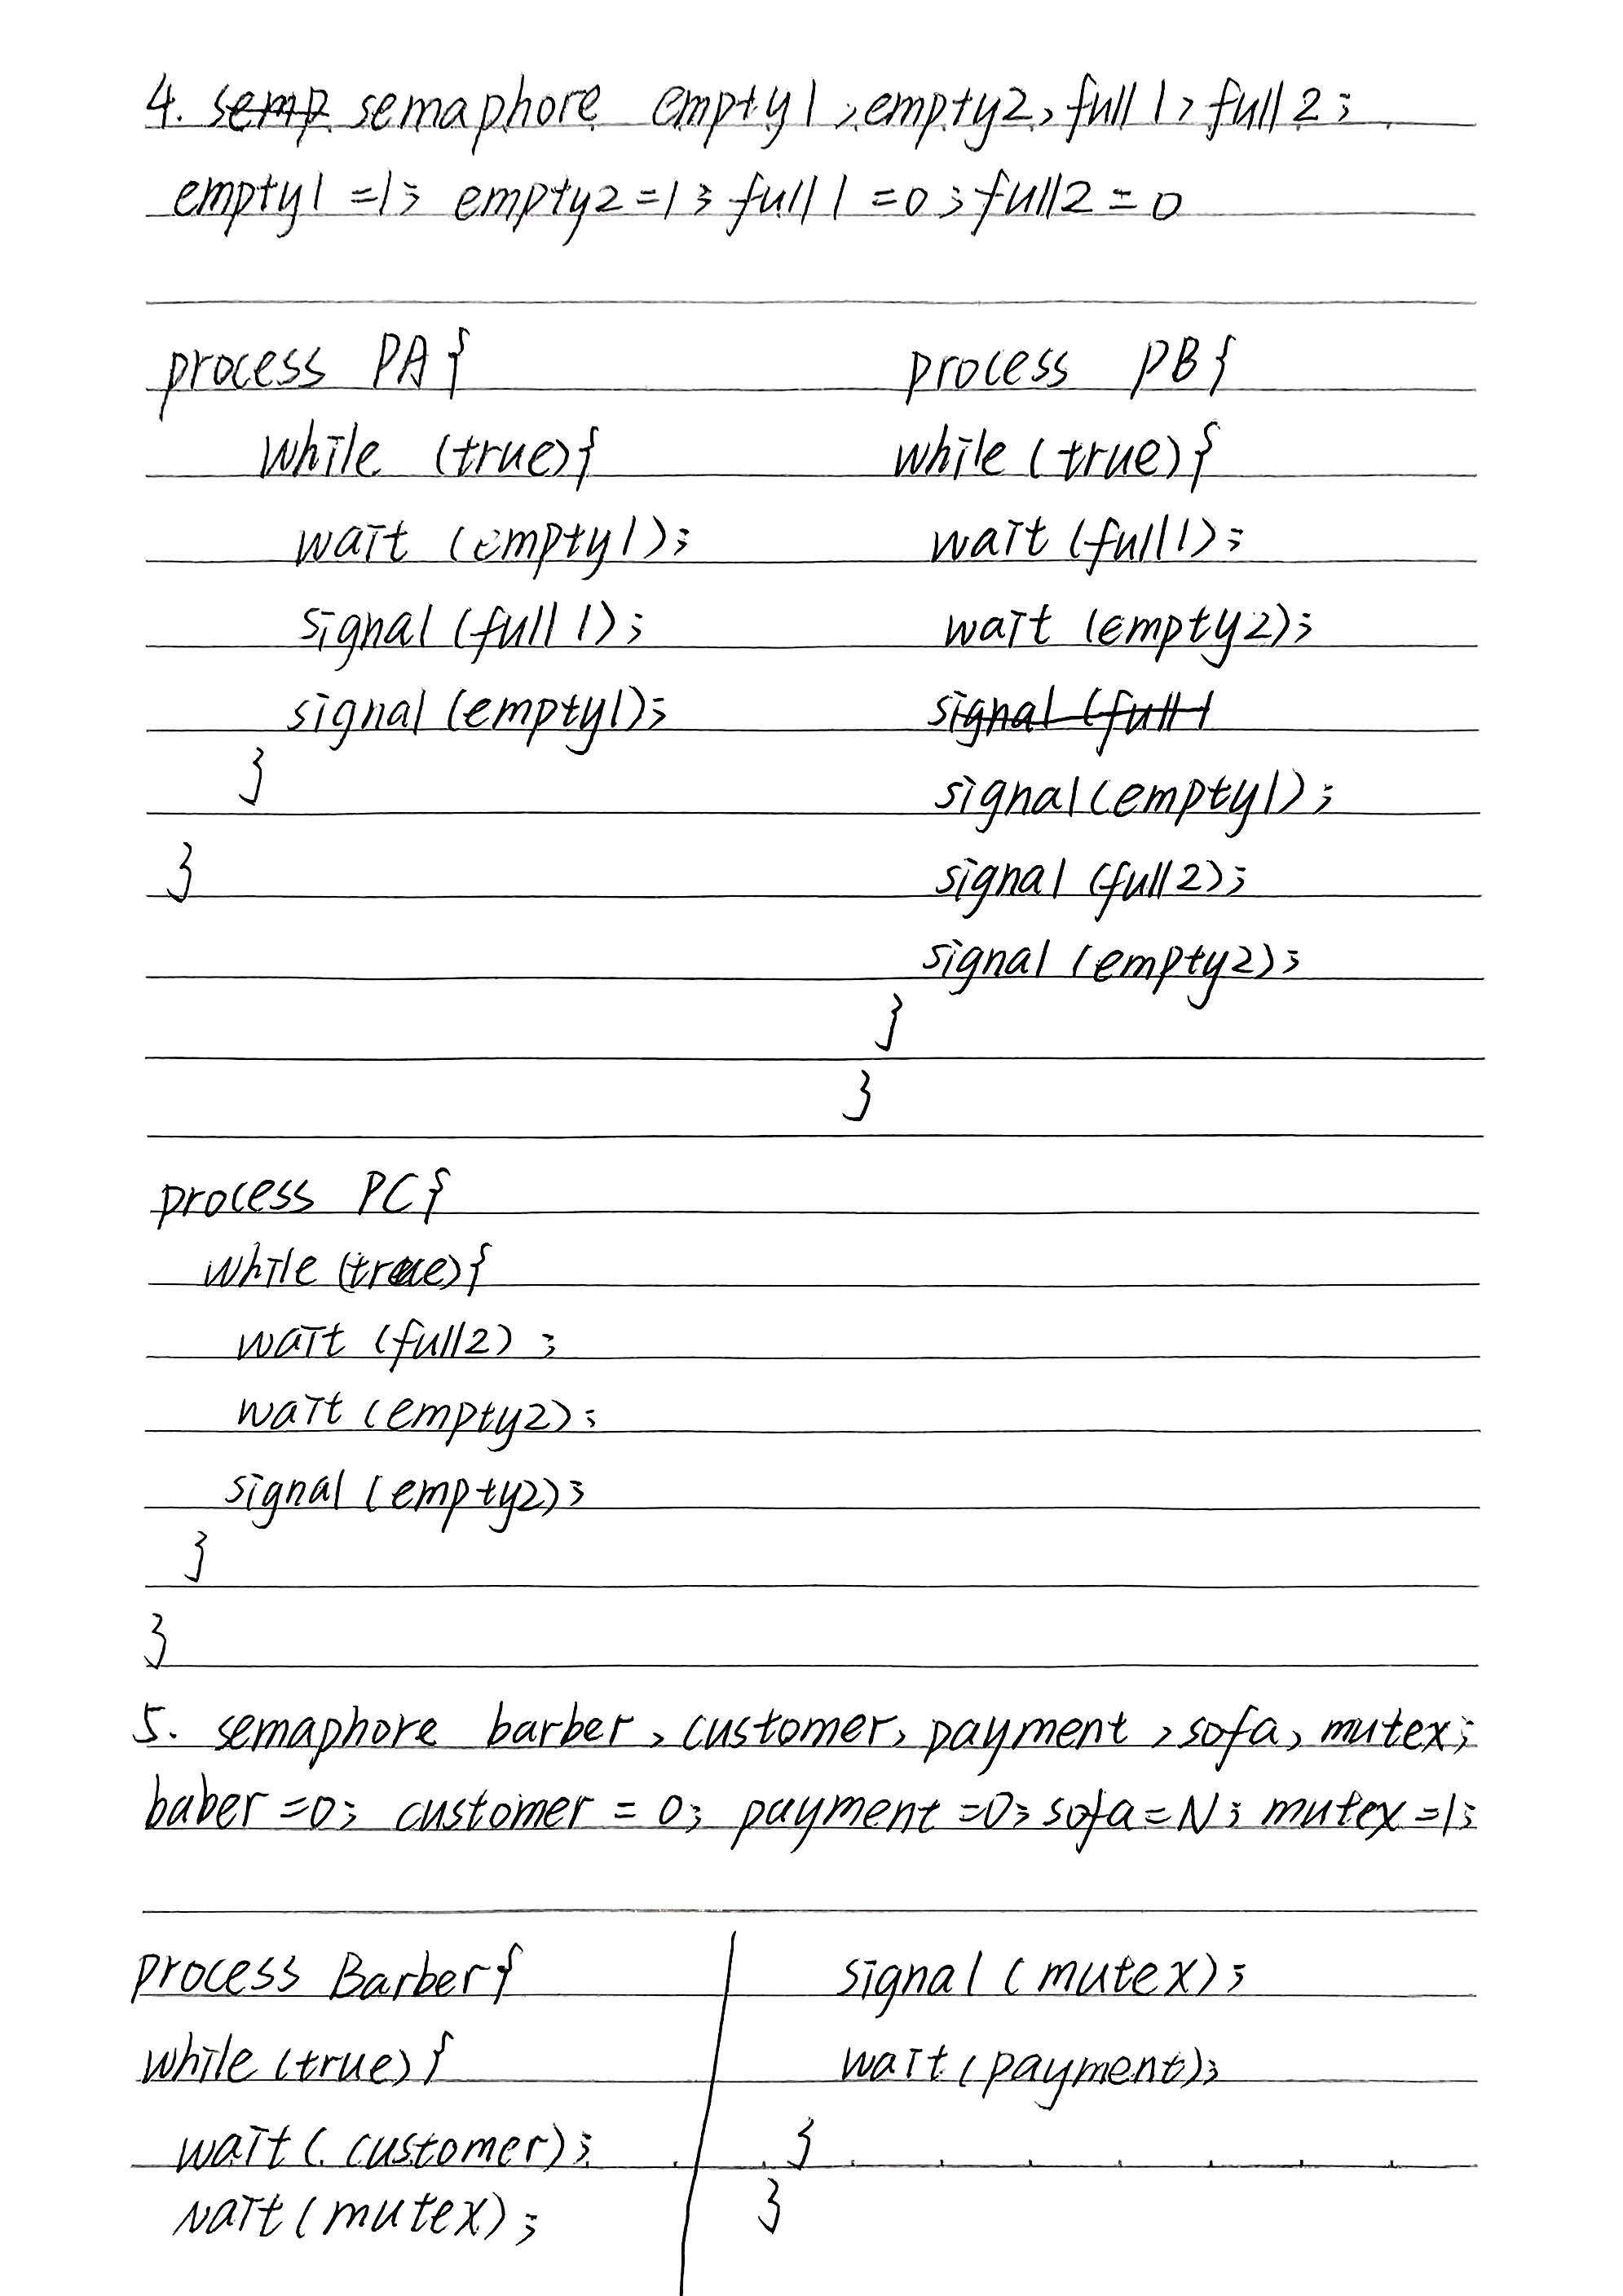 4. semp semaphore empty1, empty2, full1, full2;
empty1 =1; empty2=1; full1 =0; full2=0
process PA{
while (true){
wait (empty1);
signal (full1);
signal (empty1);
}
}
process PB{
while (true){
wait (full1);
wait (empty2);
signal (full1
signal (empty1);
signal (full2);
signal (empty2);
}
}
process PC{
while (true){
wait (full2);
wait (empty2);
signal (empty2);
}
}
5. semaphore barber, customer, payment, sofa, mutex;
baber =0; customer = 0; payment =0; sofa=N; mutex =1;
process Barber{
while (true){
wait (customer);
wait (mutex);
signal (mutex);
wait (payment);
}
}